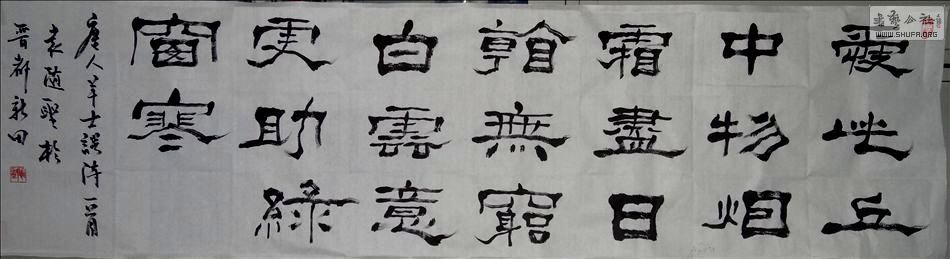 愛此丘
中物烟
霜盡日
看無窮
白雲意
更助綠
窗寒
唐人羊士諤詩一首
袁隨聖於
晋都新田
书艺公社
WWW.SHUFA.ORG